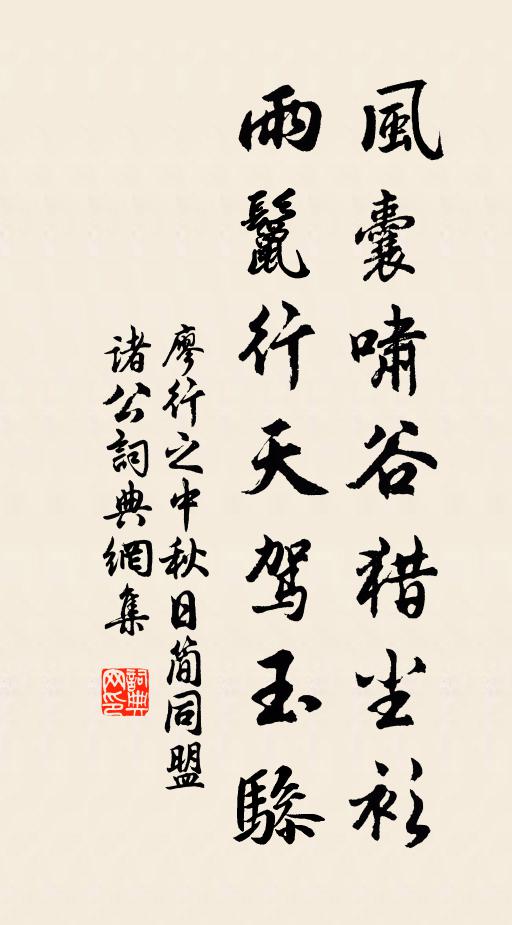 風囊嘯谷猎尘衫
雨鬣行天駕玉驂
廖行之中秋日简同盟
諸公詞典網集
詞典网印